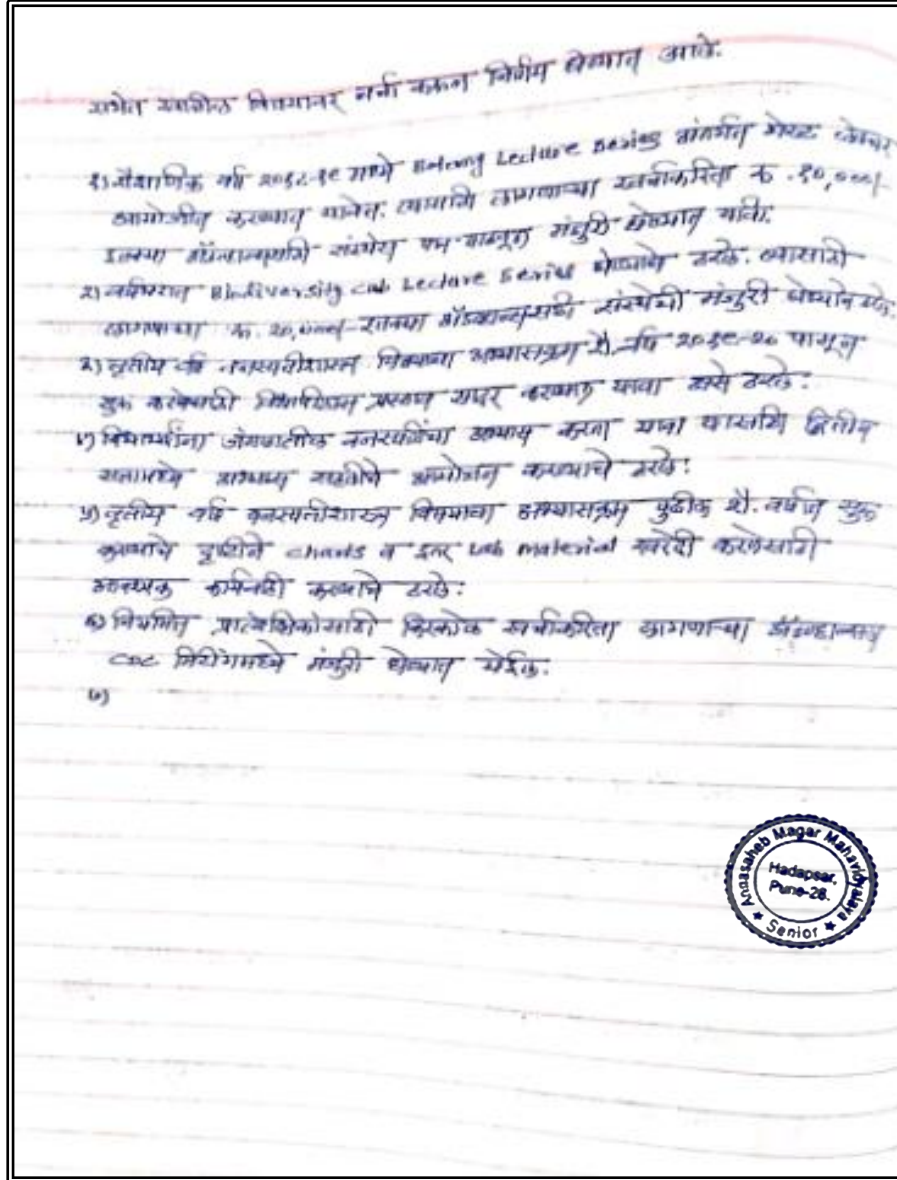 सभेत खालील विषयावर चर्चा करून निर्णय घेण्यात आले.
१) शैक्षणिक वर्ष २०१८-१९ मध्ये Botany Lecture Series अंतर्गत गेस्ट लेक्चर
आयोजीत करण्यात यावेत. त्यासाठी लागणाऱ्या खर्चाकरिता रु. १०,०००/-
इतक्या संस्थेस पत्र पाठवून मंजुरी घेण्यात यावी.
२) Biodiversity club Lecture Series घेण्याचे ठरले. त्यासाठी
लागणाऱ्या रु. २०,०००/- संस्थेची मंजुरी घेण्याचे ठरले.
३) तृतीय वर्ष वनस्पतीशास्त्र विषयाचा अभ्यासक्रम शै. वर्ष २०१९-२० पासून
सुरू करणेसाठी प्रस्ताव सादर करण्यात यावा असे ठरले.
४) विद्यार्थ्यांना जंगलातील वनस्पतींचा अभ्यास करता यावा यासाठी द्वितीय
सत्रामध्ये अभ्यास सहलीचे आयोजन करण्याचे ठरले.
५) तृतीय वर्ष वनस्पतीशास्त्र विषयाचा अभ्यासक्रम पुढील शै. वर्षात सुरू
करण्याचे दृष्टीने charts व इतर Lab material खरेदी करणेसाठी
आवश्यक कार्यवाही करण्याचे ठरले.
६) नियमित प्रात्यक्षिकांसाठी किरकोळ खर्चाकरिता लागणाऱ्या
CDC मिटींगमध्ये मंजुरी घेण्यात येईल.
७)
Annasaheb Magar Mahavidyalaya
Hadapsar,
Pune-28.
★ Senior ★